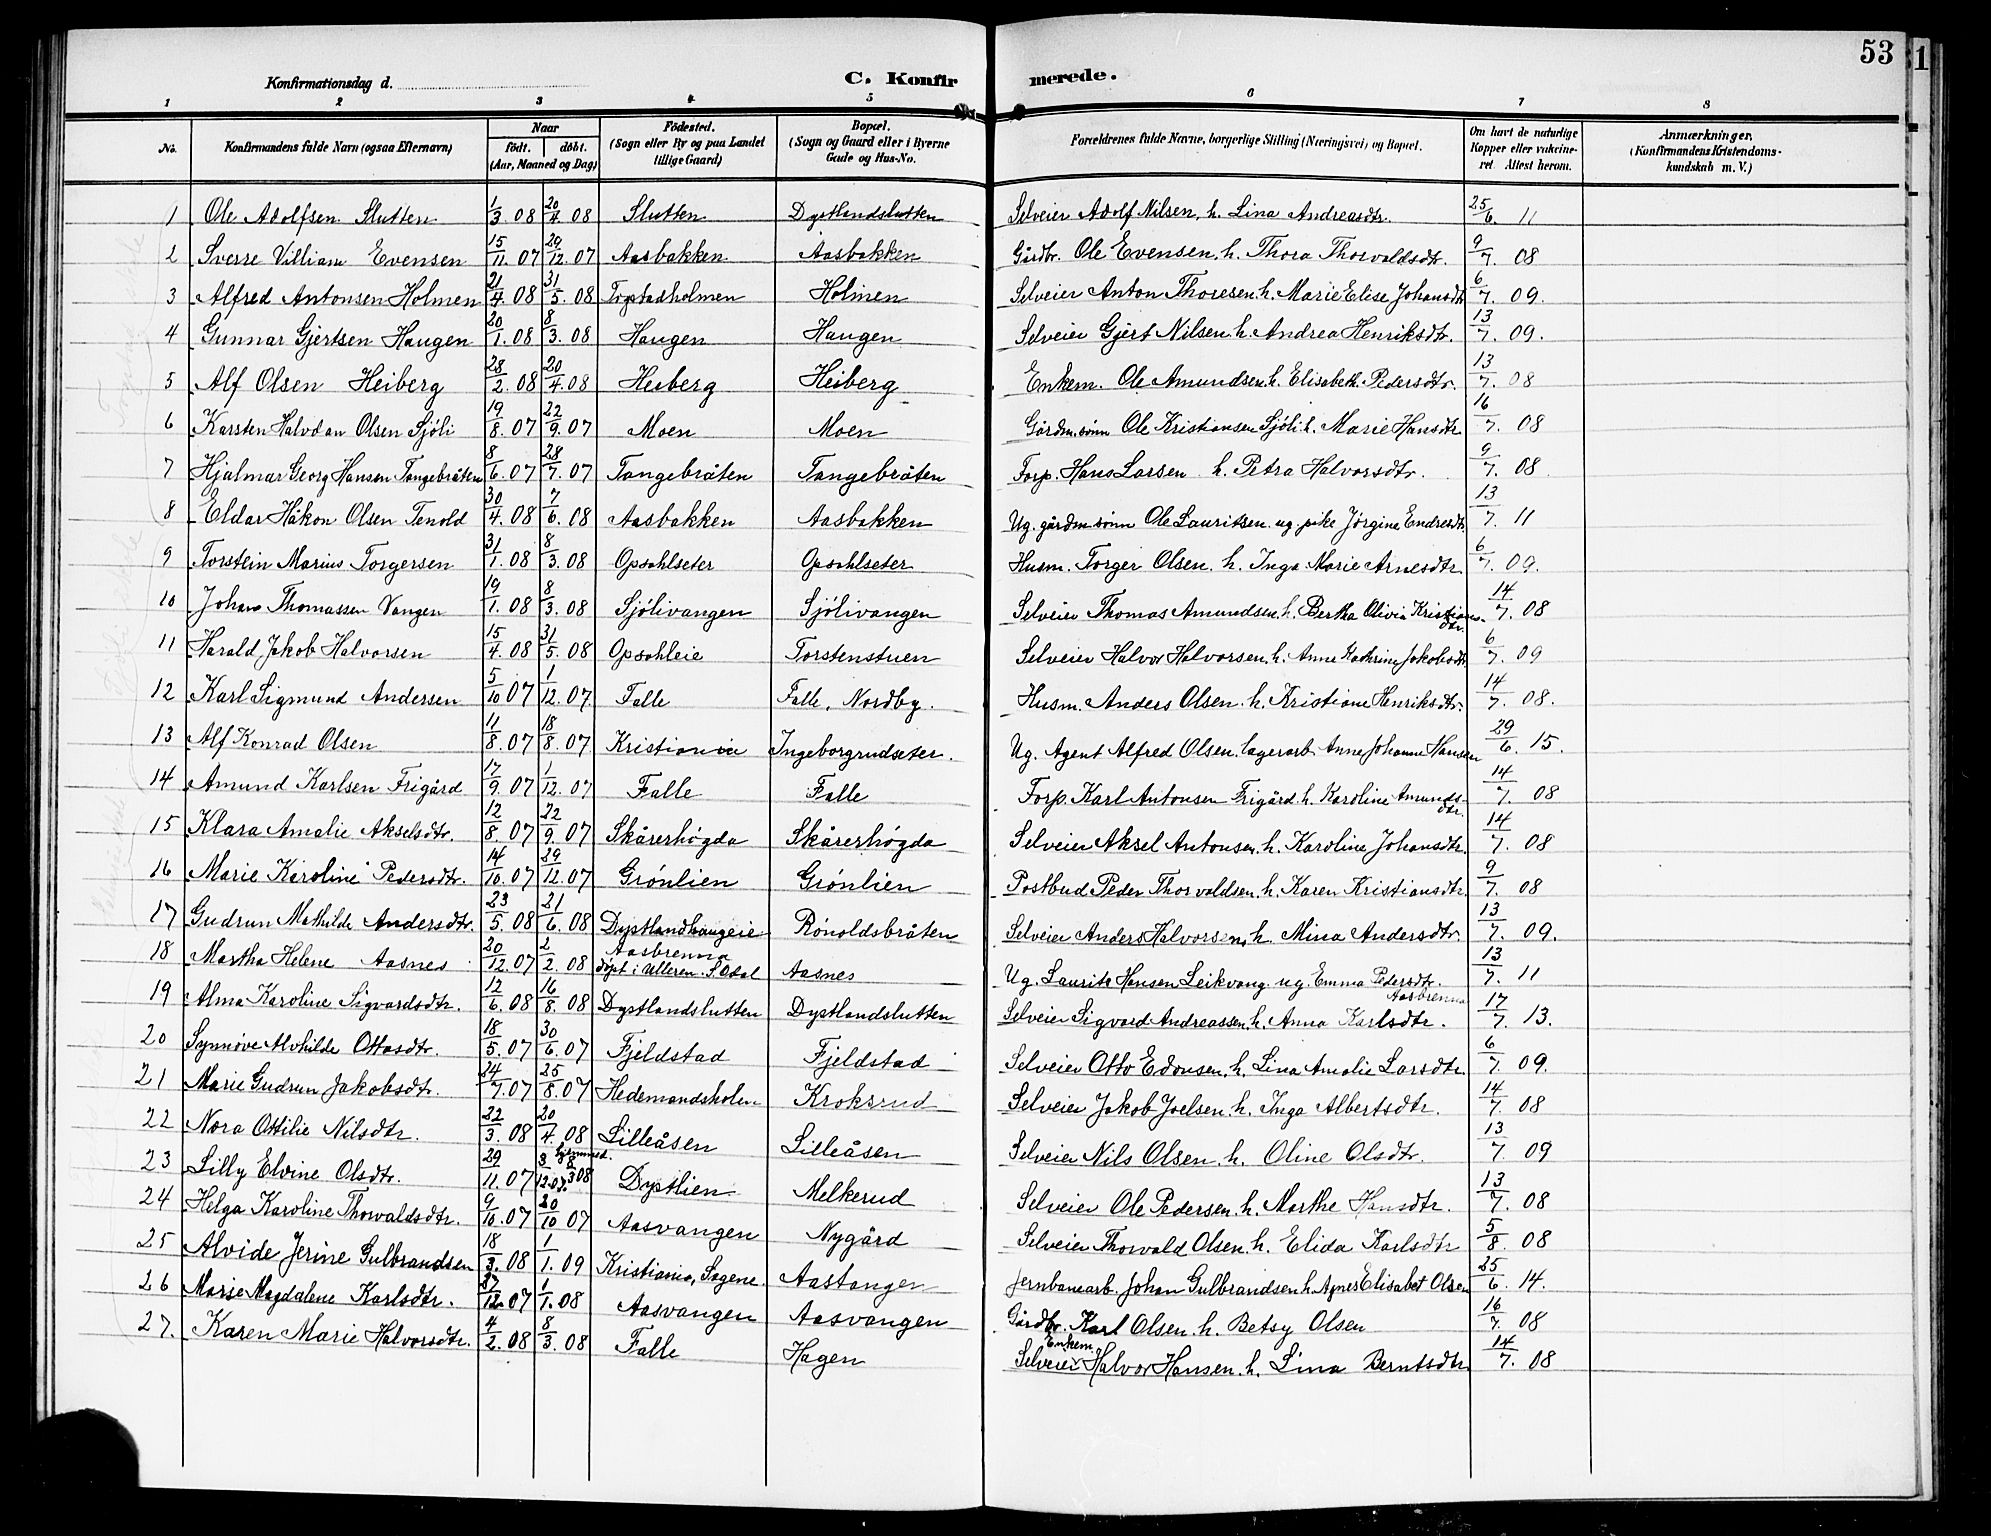 53
Konfirmationsdag d.
C. Konfirmerede.
1 2 3 4 5 6 7 8
No. Konfirmandens fulde Navn (ogsaa Efternavn) Naar født. døbt. (Aar, Maaned og Dag) Fødested. (Sogn eller By og paa Landet tillige Gaard) Bopæl. (Sogn og Gaard eller i Byerne Gade og Hus-No. Forældrenes fulde Navne, borgerlige Stilling (Næringsvei) og Bopæl. Om havt de naturlige Kopper eller vakcineret. Attest herom. Anmærkninger. (Konfirmandens Kristendomskundskab m. V.)
1 Ole Adolfsen Slutten 1/3 08 20/4 08 Slutten Dystlandslutten Selveier Adolf Nilsen, h. Lina Andreasdtr. 25/6. 11
2 Sverre Villiam Evensen 15/11. 07 29/12. 07 Aasbakken Aasbakken Gårdbr. Ole Evensen, h. Thora Thorvaldsdtr. 9/7. 08
3 Alfred Antonsen Holmen 21/4 08 31/5. 08 Holmen Selveier Anton Thoresen, h. Marie Elise Johansdtr 6/7. 09.
4 Gunnar Gjertsen Haugen 20/1. 08 8/3. 08 Haugen Haugen Selveier Gjert Nilsen, h. Andrea Henriksdtr. 13/7. 09.
5 Alf Olsen Heiberg 28/2. 08 20/4. 08 Heiberg Heiberg Enkem. Ole Amundsen, h. Elisabeth Pedersdtr. 13/7. 08
6 Karsten Halvdan Olsen Sjöli 19/8. 07 22/9. 07 Moen Moen Gårdm.sönn Ole Kristiansen Sjöli, h. Marie Hansdtr 16/7. 08
7 Hjalmar Georg Hansen Tangebråten 8/6. 07 28/7. 07 Tangebråten Tangebråten Forp. Hans Larsen h. Petra Halvorsdtr. 9/7. 08
8 Eldar Håkon Olsen Tenold 30/4. 08 7/6. 08 Aasbakken Aasbakken Ug. gårdm.sönn Ole Lauritsen ug. pike Jörgine Endresdtr. 13/7. 11
9 Torstein Marius Torgersen 31/1. 08 8/3. 08 Opsahlseter Opsahlseter Husm. Torger Olsen, h. Inga Marie Arnesdtr. 6/7. 09.
10 Johan Thomassen Vangen 19/1. 08 8/3. 08 Sjölivangen Sjölivangen Selveier Thomas Amundsen, h. Bertha Olivia Kristiansdtr. 14/7. 08
11 Harald Jakob Halvorsen 15/4. 08 31/5. 08 Opsahleie Torstenstuen Selveier Halvor Halvorsen, h. Anne Kathrine Jakobsdtr. 6/7. 09
12 Karl Sigmund Andersen 5/10 07 1/12. 07 Falle Falle, Nordby. Husm. Anders Olsen, h. Kristiane Henriksdtr. 14/7. 08.
13 Alf Konrad Olsen 11/8. 07 18/8. 07 Kristiania Ingeborgrudseter. Ug. Agent Alfred Olsen, lagerarb. Anne Johanne Hansen 29/6. 15.
14 Amund Karlsen Frigård 17/9. 07 1/12. 07 Falle Falle Forp. Karl Antonsen Frigård, h. Karoline Amundsdtr. 14/7. 08
15 Klara Amalie Akselsdtr. 12/8. 07 22/9. 07 Skårerhögda Skårerhögda Selveier Aksel Antonsen, h. Karoline Johansdtr. 14/7. 08
16 Marie Karoline Pedersdtr. 14/10. 07 29/12 07 Grönlien Grönlien Postbud Peder Thorvaldsen, h. Karen Kristiansdtr 9/7. 08
17 Gudrun Mathilde Andersdtr. 23/5. 08 21/6. 08 Dystlandhaugeie Rönoldsbråten Selveier Anders Halvorsen, h. Mina Andersdtr. 13/7. 09.
18 Martha Helene Aasnes 20/12. 07 2/2. 08 Aasbrenna döpt i Ulleren. S. Odal Aasnes Ug. Laurits Hansen Leikvang ug. Emma Pedersdtr. Aasbrenna 13/7. 11
19 Alma Karoline Sigvardsdtr. 12/6. 08 16/8. 08 Dystlandslutten Dystlandslutten Selveier Sigvard Andreassen, h. Anna Karlsdtr. 17/7. 13.
20 Synnöve Alvhilde Ottosdtr. 18/5. 07 30/6. 07 Fjeldstad Fjeldstad Selveier Otto Edvnsen, h. Lina Amalie Larsdtr. 6/7. 09.
21 Marie Gudrun Jakobsdtr. 24/7. 07 25/8. 07 Hedemandsholen Kroksrud Selveier Jakob Joelsen, h. Inga Albertsdtr. 14/7. 08
22 Nora Ottilie Nilsdtr. 22/3. 08 20/4. 08 Lilleåsen Lilleåsen Selveier Nils Olsen, h. Oline Olsdtr. 13/7. 09
23 Lilly Elvine Olsdtr. 29/11. 07 3/12. 07. hjemmed. 8/3 08 Dystlien Melkerud Selveier Ole Pedersen, h. Marthe Hansdtr. 13/7. 08
24 Helga Karoline Thorvaldsdtr. 9/10. 07 20/10 07 Aasvangen Nygård Selveier Thorvald Olsen, h. Elida Karlsdtr 5/8. 08
25 Alvide Jerine Gulbrandsen 18/3. 08 1/1. 09 Kristiania, Sagene. Aastangen Jernbanearb. Johan Gulbrandsen h. Agnes Elisabet Olsen 25/6. 14.
26 Marie Magdalene Karlsdtr. 27/12. 07 1/1. 08 Aasvangen Aasvangen Gårdbr. Karl Olsen, h. Betsy Olsen 16/7. 08
27. Karen Marie Halvorsdtr. 4/2. 08 8/3. 08 Falle Hagen Enkem. Selveier Halvor Hansen, h. Lina Berntsdtr. 14/7. 08